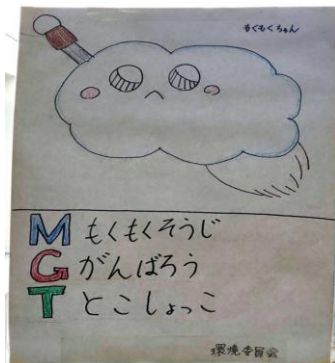 もくもくちゃん
M もくもくそうじ
G がんばろう
T とこしょっこ
環境委員会